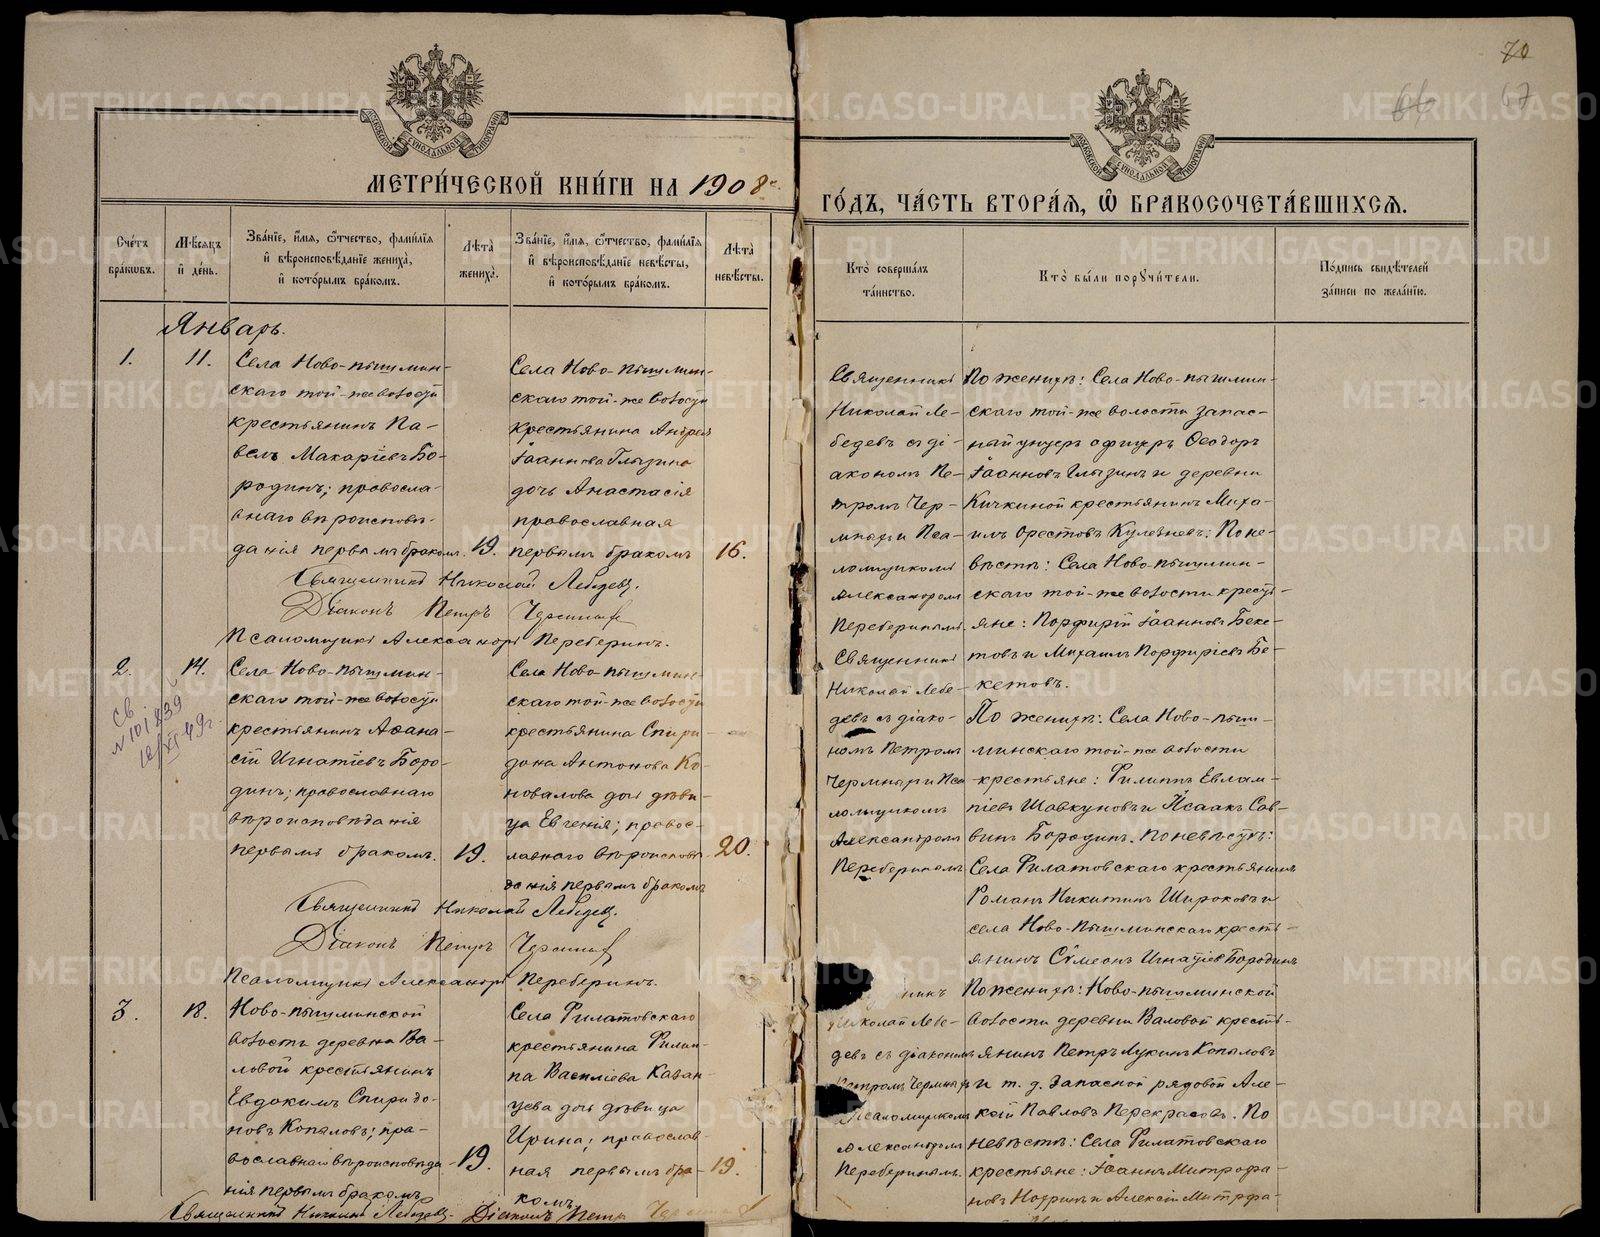 70
66
67
МЕТРИ́ЧЕСКОЙ КНИ́ГИ НА 1908
ГО́ДЪ, ЧА́СТЬ ВТОРА́Я, Ѡ҆ БРАКОСОЧЕТА́ВШИХСЯ.
Сче́тъ бра́кѡвъ.
Мѣ́сяцъ и҆ де́нь.
Зва́нїе, и҆́мя, ѻ҆́тчество, фами́лїя и҆ вѣроисповѣ́данїе жениха̀, и҆ кото́рымъ бра́комъ.
Лѣта̀ жениха̀.
Зва́нїе, и҆́мя, ѻ҆́тчество, фами́лїя и҆ вѣроисповѣ́данїе невѣ́сты, и҆ кото́рымъ бра́комъ.
Лѣта̀ невѣ́сты.
Кто̀ соверша́лъ та́инство.
Кто̀ бы́ли порꙋчи́тели.
По́дпись свидѣ́телей за́писи по жела́нїю.
Январь.
1.
11.
Села Ново-пышмин-
скаго той-же волости
крестьянинъ Па-
велъ Макаріевъ Бо-
родинъ; правосла-
внаго вѣроисповѣ-
данія первымъ бракомъ.
19.
Села Ново-пышмин-
скаго той-же волости
крестьянина Андрея
Іаннова Глызина
дочь Анастасія
православная
первымъ бракомъ
16.
Священникъ
Николай Ле-
бедевъ съ ді-
акономъ Пе-
тромъ Чер-
мнымъ и Пса-
ломщикомъ
Александромъ
Переберинымъ.
По женихѣ: Села Ново-пышмин-
скаго той-же волости запас-
ный унтеръ офицеръ Ѳеодоръ
Іаанновъ Глызинъ и деревни
Кичкиной крестьянинъ Миха-
илъ Орестовъ Кулезневъ; По не-
вѣстѣ: Села Ново-пышмин-
скаго той-же волости крестья-
яне: Порфирій Іаанновъ Беке-
товъ и Михаилъ Порфиріевъ Бе-
кетовъ.
Священникъ Николай Лебедевъ.
Діаконъ Петръ Чермныхъ
Псаломщикъ Александръ Переберинъ.
2.
14.
Св.
Села Ново-пышмин-
скаго той-же волости
крестьянинъ Аѳана-
сій Игнатіевъ Боро-
динъ; православнаго
вѣроисповѣданія
первымъ бракомъ.
19.
Села Ново-пышмин-
скаго той-же волости
крестьянина Спири-
дона Антонова Ко-
новалова дочь дѣви-
ца Евгенія; правос-
лавнаго вѣроисповѣ-
данія первымъ бракомъ
20.
Священникъ
Николай Лебе-
девъ съ діако-
номъ Петромъ
Чермнымъ и Пса-
ломщикомъ
Александромъ
Переберинымъ
По женихѣ: Села Ново-пыш-
минскаго той-же волости
крестьяне: Филиппъ Евлам-
піевъ Шавкуновъ и Исаакъ Сав-
винъ Бородинъ. По невѣстѣ:
Села Филатовскаго крестьянинъ
Романъ Никитинъ Широковъ и
села Ново-пышминскаго кресть-
янинъ Сѵмеонъ Игнатіевъ Бородинъ
Священникъ Николай Лебедевъ.
Діаконъ Петръ Чермныхъ
Псаломщикъ Александръ Переберинъ.
3.
18.
Ново-пышминской
волости деревни Ва-
ловой крестьянинъ
Евдокимъ Спиридо-
новъ Копыловъ; пра-
вославнаго вѣроисповѣда-
нія первымъ бракомъ
19.
Села Филатовскаго
крестьянина Филип-
па Василіева Казан-
цева дочь дѣвица
Ирина; православ-
ная первымъ бра-
комъ
19.
Николай Лебе-
девъ съ діакономъ
Петромъ Чермнымъ
Псаломщикомъ
Александромъ
Переберинымъ.
По женихѣ: Ново-пышминской
волости деревни Валовой кресть-
янинъ Петръ Лукинъ Копыловъ
и т. д. Запасной рядовой Але-
ксѣй Павловъ Перекрасовъ. По
невѣстѣ: Села Филатовскаго
крестьяне: Іааннъ Митрофа-
новъ и Алексій Митрфа-
Священникъ Николай Лебедевъ. Діаконъ Петръ Чермныхъ